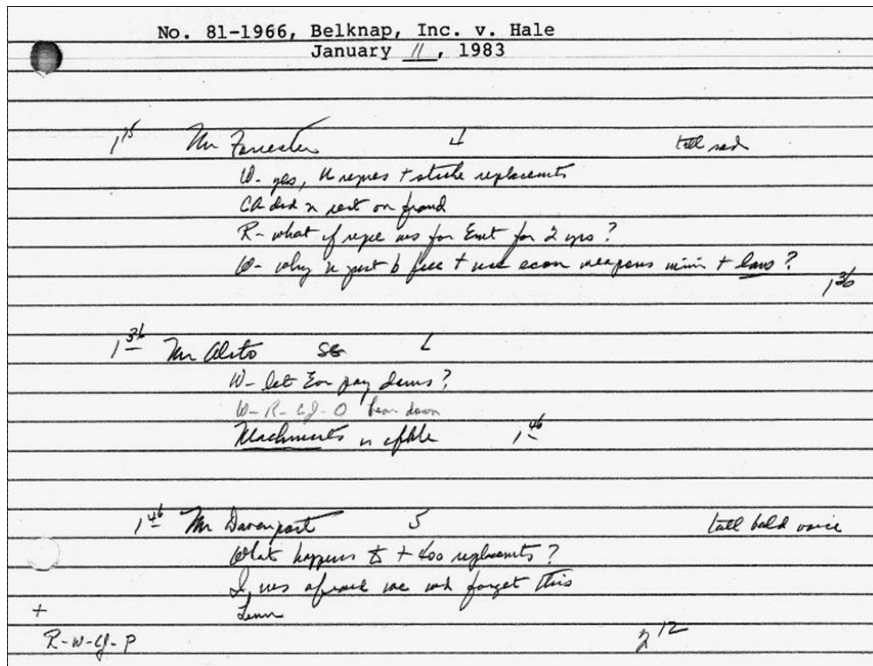 No. 81-1966, Belknap, Inc. v. Hale
January 11, 1983
1 15 Mr Forrester 4 tall
W- yes, replacemts
CA did n rest on fraud
R- what if for 2 yrs?
W- why n just b free + use econ weapons + laws?
1 36
1 36 Mr Alito SG
W- let Eer pay dams?
W-R-CJ-O bear down
Machinists n
1 46
1 46 Mr Davenport 5 tall bald voice
What happens + 400 replacemts?
I was afraid we wd forget this
+
R-W-CJ-P 2 12